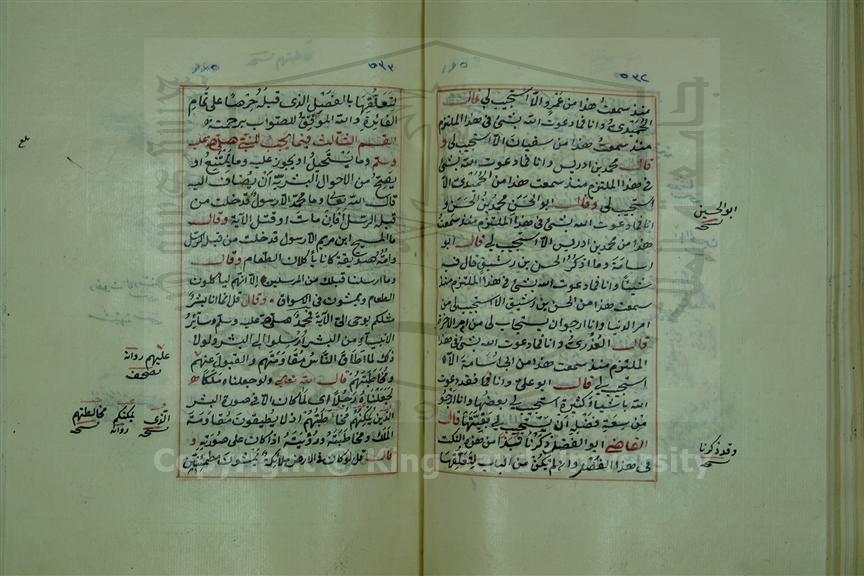 ٥٣٢
منذ سمعت هذا من عمرو الا استجيب لي قال
الحميدي وانا فما دعوت الله بشئ في هذا الملتزم
منذ سمعت هذا من سفيان الا استجيب لي و
قال محمد بن ادريس وانا فما دعوت الله بشئ
في هذا الملتزم منذ سمعت هذا من الحميدي الا
استجيب لي وقال ابو الحسن محمد بن الحسن و
انا فما دعوت الله بشئ في هذا الملتزم منذ سمعت
هذا من محمد بن ادريس الا استجيب لي قال ابو
اسامة وما اذكر الحسن بن رشيق قال فيه
شيئا وانا فما دعوت الله بشئ في هذا الملتزم منذ
سمعت هذا من الحسن بن رشيق الا استجيب لي من
امر الدنيا وانا ارجو ان يستجاب لي من امر الاخرة
قال العذري وانا فما دعوت الله بشئ في هذا
الملتزم منذ سمعت هذا من ابي اسامة الا
استجيب لي قال ابو علي وانا فما فقد دعوت
الله باشياء كثيرة استجيب لي بعضها وانا ارجو
من سعة فضله ان يستجيب لي بقيتها قال
القاضي ابو الفضل ذكرنا نبذا من هذه النكت
في هذا الفصل وان لم يكن من الباب لتعلقها
ابو الحسين
نسخة
وقد ذكرنا
نسخة
٥٣٣
لتعلقها بالفصل الذي قبله حرصا على تمام
الفائدة والله الموفق للصواب برحمته
القسم الثالث فيما يجب للنبي صلى الله عليه
وسلم وما يستحيل او يجوز عليه وما يمتنع او
يصح من الاحوال البشرية ان يضاف اليه
قال الله تعالى وما محمد الا رسول قد خلت من
قبله الرسل أفإن مات او قتل الآية وقال
ما المسيح ابن مريم الا رسول قد خلت من قبله الرسل
وامه صديقة كانا يأكلان الطعام وقال
وما ارسلنا قبلك من المرسلين الا انهم ليأكلون
الطعام ويمشون في الاسواق وقال قل انما انا بشر
مثلكم يوحى الي الآية فمحمد صلى الله عليه وسلم وسائر
الانبياء من البشر أرسلوا الى البشر ولولا
ذلك لما اطاق الناس مقاومتهم والقبول عنهم
ومخاطبتهم قال الله تعالى ولو جعلناه ملكا
لجعلناه رجلا اي لما كان الا في صورة البشر
الذين يمكنهم مخاطبتهم اذ لا يطيقون مقاومة
الملك ومخاطبته ورؤيته اذ كان على صورته و
قال قل لو كان في الارض ملائكة يمشون مطمئنين
بلغ
عليهم رواية
مصحف
الذي
نسخة
يمكنكم
رواية
مخالطتهم
نسخة
Copyright © King Saud University